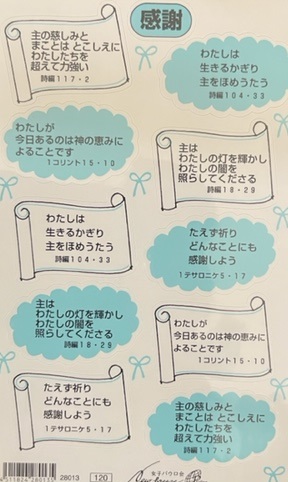 感謝
主の慈しみと
まことは とこしえに
わたしたちを
超えて力強い
詩編117・2
わたしは
生きるかぎり
主をほめうたう
詩編104・33
わたしが
今日あるのは神の恵みに
よることです
1コリント15・10
主は
わたしの灯を輝かし
わたしの闇を
照らしてくださる
詩編18・29
わたしは
生きるかぎり
主をほめうたう
詩編104・33
たえず祈り
どんなことにも
感謝しよう
1テサロニケ5・17
主は
わたしの灯を輝かし
わたしの闇を
照らしてくださる
詩編18・29
わたしが
今日あるのは神の恵みに
よることです
1コリント15・10
たえず祈り
どんなことにも
感謝しよう
1テサロニケ5・17
主の慈しみと
まことは とこしえに
わたしたちを
超えて力強い
詩編117・2
28013
120
女子パウロ会